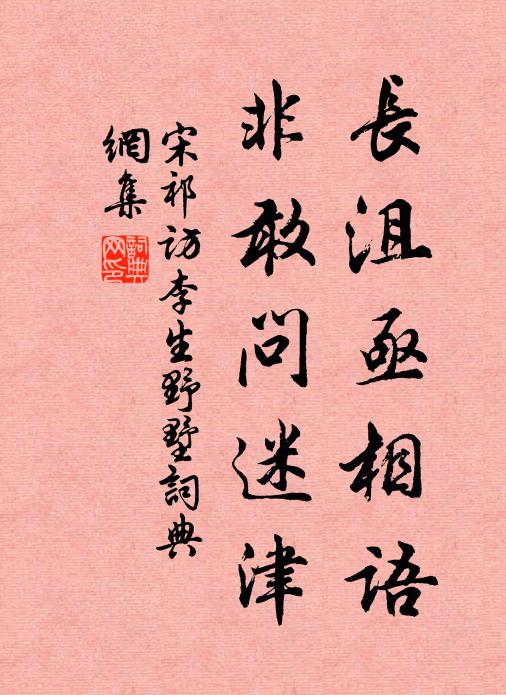 長沮亟相語
非敢問迷津
宋祁訪李生野墅詞典
網集
詞典網印